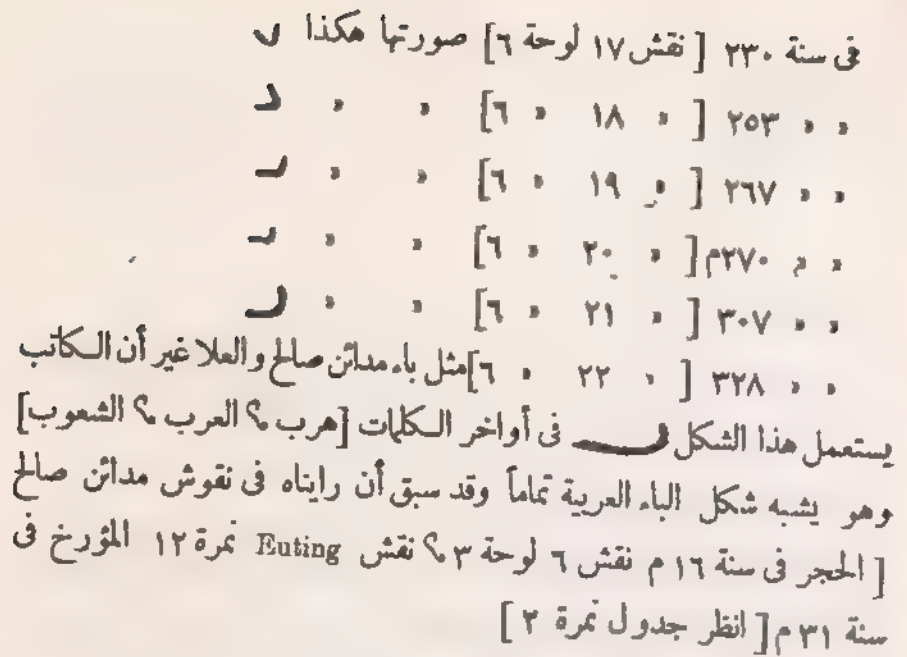 فى سنة ٢٣٠ [ نقش ١٧ لوحة ٦] صورتها هكذا
» » ٢٥٣ [ » ١٨ » ٦] » »
» » ٢٦٧ [ » ١٩ » ٦] » »
» » ٢٧٠م [ » ٢٠ » ٦] » »
» » ٣٠٧ [ » ٢١ » ٦] » »
» » ٣٢٨ [ » ٢٢ » ٦] مثل باء مدائن صالح والعلا غير أن الكاتب
يستعمل هذا الشكل فى أواخر الكلمات [هرب ؟ العرب ؟ الشعوب]
وهو يشبه شكل الباء العربية تماماً وقد سبق أن رايناه فى نقوش مدائن صالح
[ الحجر فى سنة ١٦ م نقش ٦ لوحة ٣ ؟ نقش Euting نمرة ١٢ المؤرخ فى
سنة ٣١ م [ انظر جدول نمرة ٢ ]